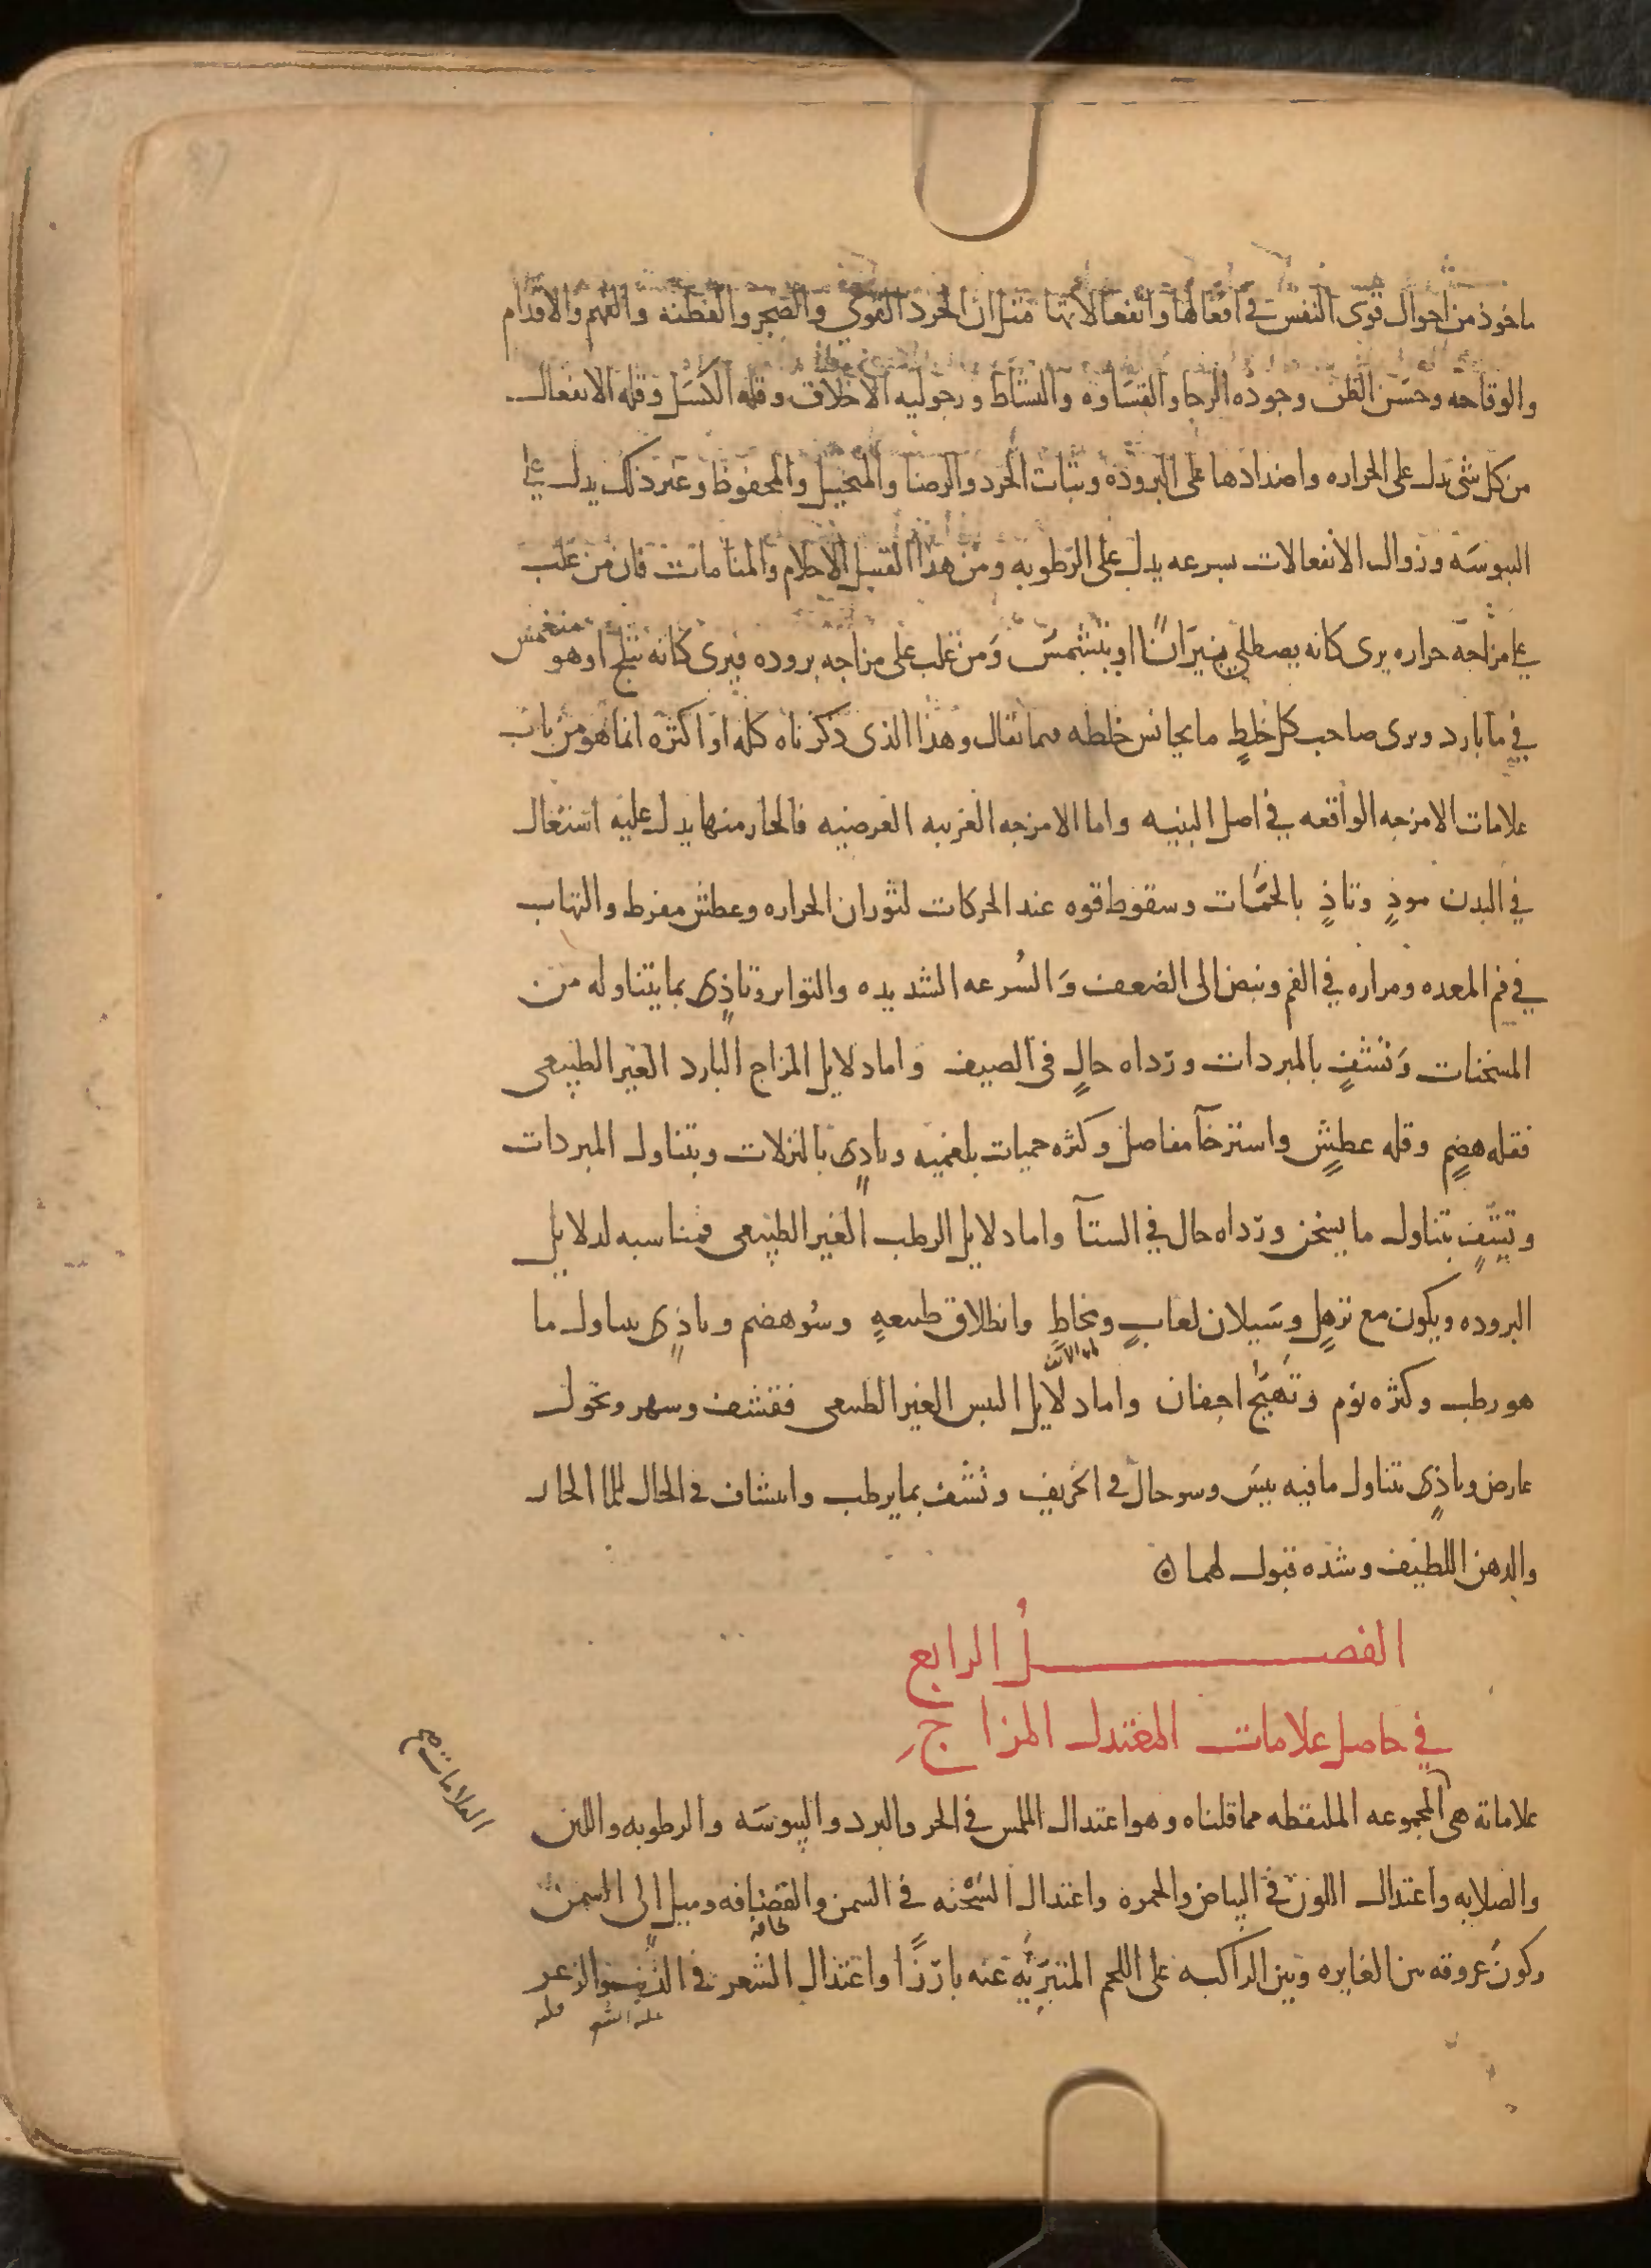 ماخوذ من احوال قوى النفس في افعالها وانفعالاتها مثل ان الحرد القوي والضجر والفطنه والفهم والاقدام
والوقاحه وحسن الظن وجوده الرجا والقساوه والنشاط ورجوليه الاخلاق وقله الكسل وقله الانفعال
من كل شى يدل على الحراره واضدادها على البروده وثبات الحرد والرضا والمتخيل والمحفوظ وغير ذلك يدل على
اليبوسه وزوال الانفعالات بسرعه يدل على الرطوبه ومن هذا القبيل الاحلام والمنامات فان من غلب
على مزاجه حراره يرى كانه يصطلي بنيرانا او يتشمس ومن غلب على مزاجه بروده فيرى كانه يثلج او هو منغمس
في ما بارد ويرى صاحب كل خلط ما يجانس خلطه فيما يقال وهذا الذى ذكرناه كله او اكثره انما هو من باب
علامات الامزجه الواقعه في اصل البنيه واما الامزجه الغريبه العرضيه فالحار منها يدل عليه اشتعال
في البدن موذ وتاذ بالحميات وسقوط قوه عند الحركات لثوران الحراره وعطش مفرط والتهاب
في فم المعده ومراره في الفم ونبض الى الضعف والسرعه الشديده والتواتر وتاذى بما يتناوله من
المسخنات وتشف بالمبردات ورداه حال فى الصيف واما دلايل المزاج البارد الغير الطبيعى
فقله هضم وقله عطش واسترخا مفاصل وكثره حميات بلغميه وتاذى بالنزلات وبتناول المبردات
وتشف بتناول ما يسخن ورداه حال في الشتا واما دلايل الرطب الغير الطبيعى فمناسبه لدلايل
البروده ويكون مع ترهل وسيلان لعاب ومخاط وانطلاق طبيعه وسو هضم وتاذى بتناول ما
هو رطب وكثره نوم وتهيج اجفان واما دلايل اليبس الغير الطبيعى فقشف وسهر ونحول
عارض وتاذى بتناول ما فيه يبس وسو حال في الخريف وتشف بما يرطب وانتشاف في الحال للما الحار
والدهن اللطيف وشده قبول لهما
الفصل الرابع
في حاصل علامات المعتدل المزاج
علاماته هى المجموعه الملتقطه مما قلناه وهو اعتدال الملمس في الحر والبرد واليبوسه والرطوبه واللين
العلامات صح
والصلابه واعتدال اللون في البياض والحمره واعتدال السحنه في السمن والقضافه وميل الى السمن
وكون عروقه بين الغايره وبين الراكبه على اللحم المتبريه عنه بارزا واعتدال الشعر في الزبب والزعر